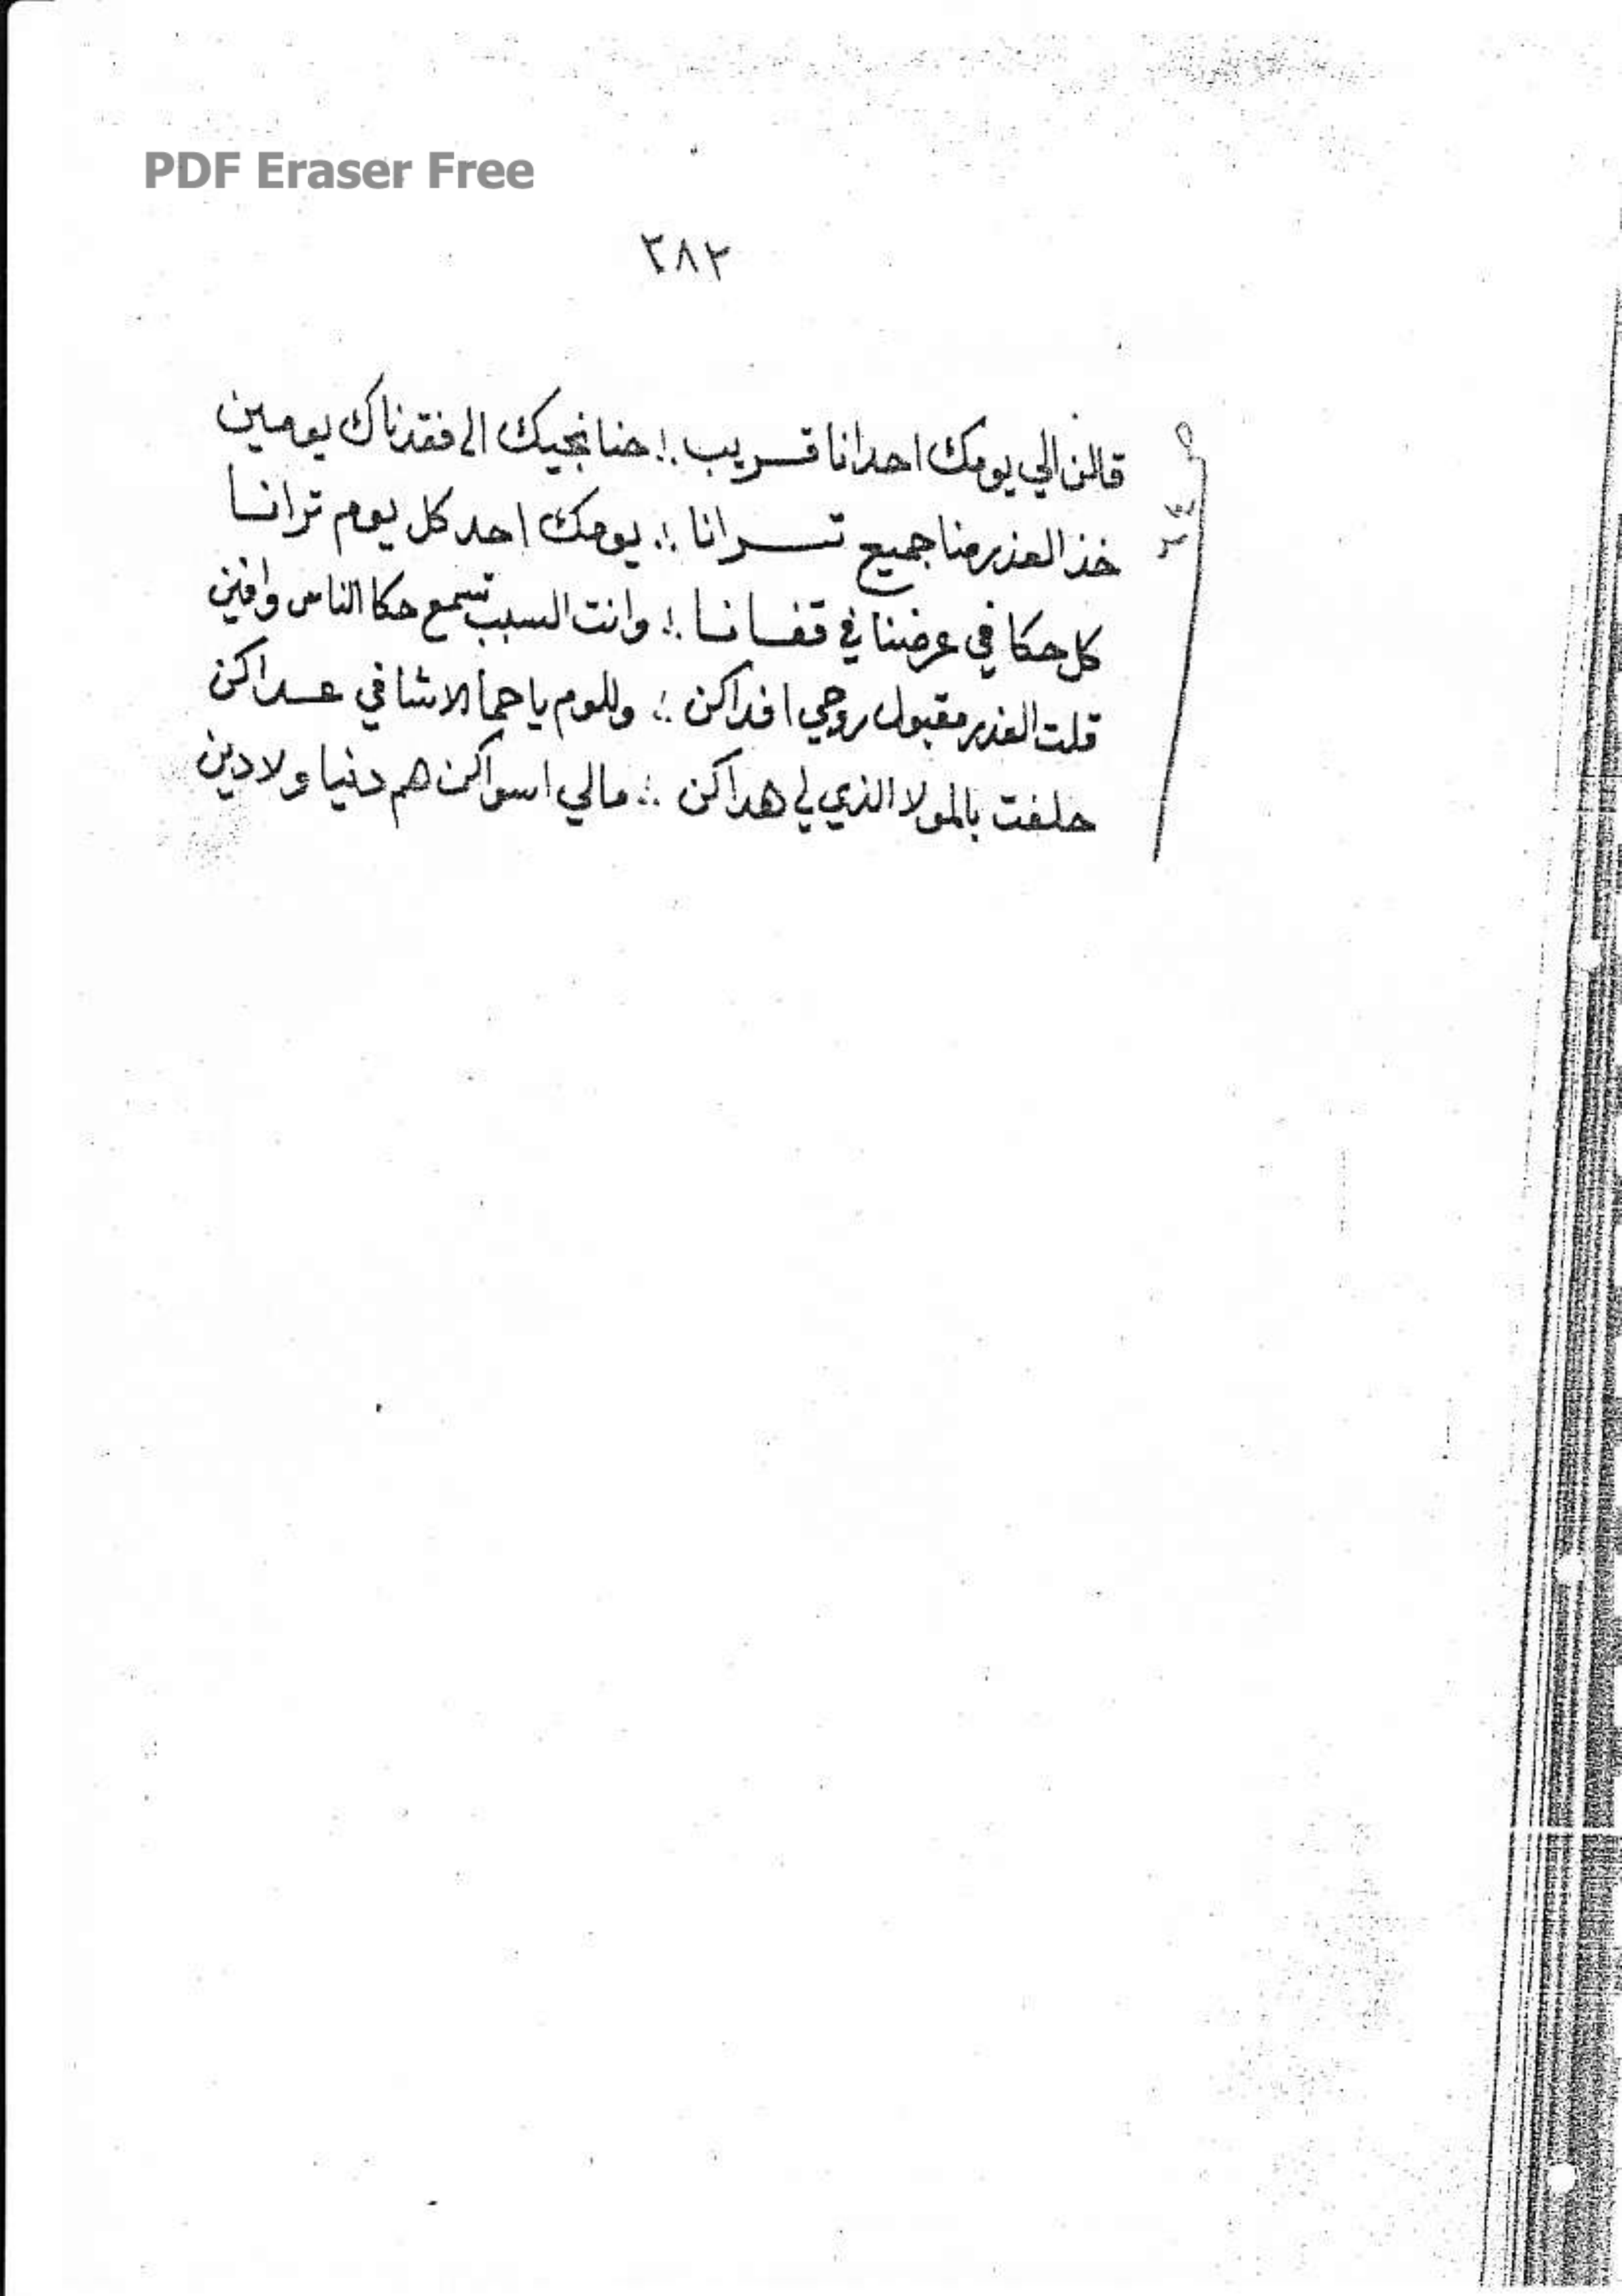 PDF Eraser Free
٣٨٢
قالن الي يومك احدانا قريب ؛ حنا نجيك الى فقدناك يومين
خذ العذر منا جميع ترانا ؛ يومك احد كل يوم ترانا
كل حكا في عرضنا في قفانا ؛ وانت السبب تسمع حكا الناس وافين
قلت العذر مقبول روحي افداكن ؛ وللوم يا حما الاشافي عداكن
حلفت بالمولا الذي لي هداكن ؛ مالي اسواكن هم دنيا ولا دين